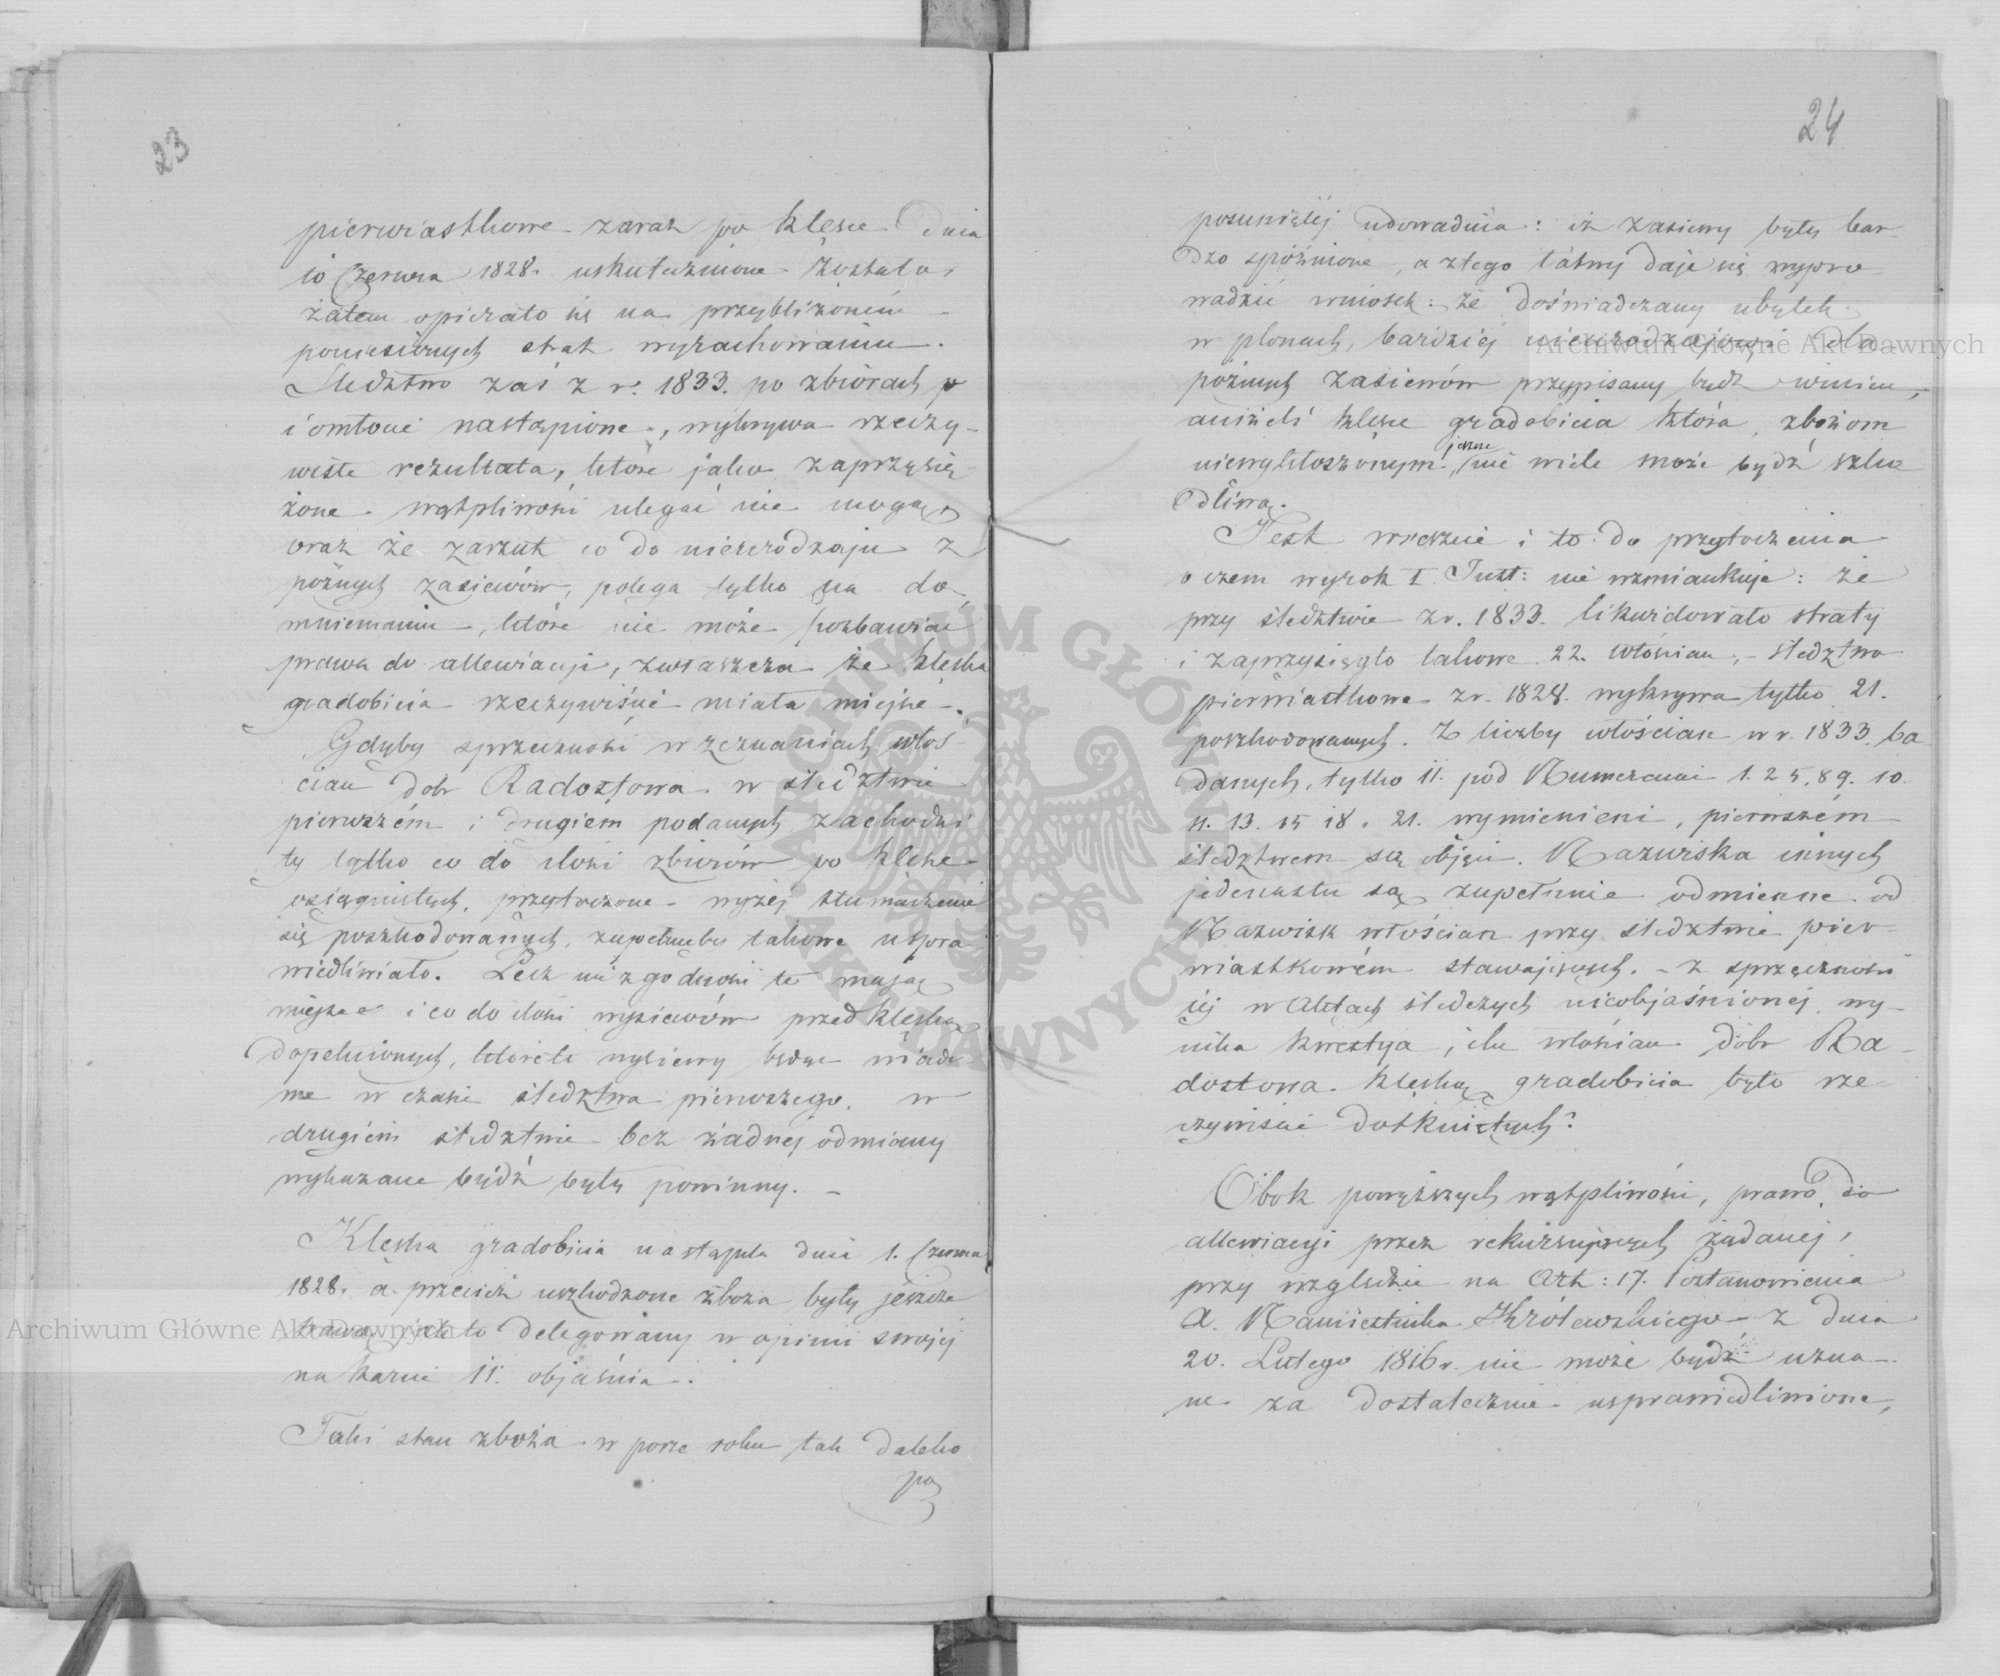 23
pierwiastkowe zaraz po klęsce dnia
10 Czerwca 1828. uskutecznione zostało,
zatem opierało się na przybliżoném
poniesionych strat wyrachowaniu.
Śledztwo zaś z r. 1833. po zbiorach
i omłocie nastąpione, wykrywa rzeczy-
wiste rezultata, które jako zaprzysię-
żone wątpliwości ulegać nie mogą,
oraz że zarzut co do nieurodzaju z
późnych zasiewów, polega tylko na do-
mniemaniu, które nie może pozbawiać
prawa do allewiacji, zwłaszcza że klęska
gradobicia rzeczywiście miała miejsce.
Gdyby sprzeczności w zeznaniach włoś-
cian dobr Radostowa w śledztwie
pierwszém i drugiém podanych zachodzi
ły tylko co do ilości zbiorów po klęsce
osiągniętych, przytoczone wyżej tłumaczenie
się poszkodowanych, zupełnieby takowe uspra
wiedliwiało. Lecz niezgodności te mają
miejsce i co do ilości wysiewów przed klęską
dopełnionych, któreto wysiewy będąc wiado
me w czasie śledztwa pierwszego, w
drugiém śledztwie bez żadnej odmiany
wykazane bydź były powinny. –
Klęska gradobicia nastąpiła dnia 1. Czerwca
1828. a przecież uszkodzone zboża były jeszcze
trawą, jak to Delegowany w opinii swojej
na karcie 11. objaśnia.
Taki stan zboża w porze roku tak daleko
po
24
posuniętéj udowadnia: iż zasiewy były bar-
dzo spóźnione, a z tego łatwy daje się wypro-
wadzić wniosek: że doświadczany ubytek
w plonach, bardziej nieurodzajowi dla
późnych zasiewów przypisany bydź winien,
aniżeli klęsce gradobicia która zbożom
niewykłoszonym jeszcze nie wiele może bydź szko
dliwą.
Jest wreszcie i to do przytoczenia
o czem wyrok I. Inst: nie wzmiankuje: że
przy śledztwie z r. 1833. likwidowało straty
i zaprzysięgło takowe 22. włościan, – śledztwo
pierwiastkowe z r. 1828. wykrywa tylko 21.
poszkodowanych. Z liczby włościan w r. 1833. ba
danych, tylko 11. pod Numerami 1. 2 5. 8 9. 10.
11. 13. 15 18. 21. wymienieni, pierwszém
śledztwem są objęci. Nazwiska innych
jedenastu są zupełnie odmienne od
Nazwisk włościan przy śledztwie pier-
wiastkowém stawających. – z sprzeczności
téj w Aktach śledczych nieobjaśnionéj, wy-
nika kwestya, ilu włościan dobr Ra-
dostowa klęską gradobicia było rze
czywiście dotkniętych?
Obok powyższych wątpliwości, prawo do
allewiacyi przez rekurrujących żądanéj,
przy względzie na Art: 17. Postanowienia
X. Namiestnika Królewskiego z dnia
20. Lutego 1816 r. nie może bydź uzna-
ne za dostatecznie usprawiedliwione,
Archiwum Główne Akt Dawnych
Archiwum Główne Akt Dawnych
ARCHIWUM GŁÓWNE AKT DAWNYCH